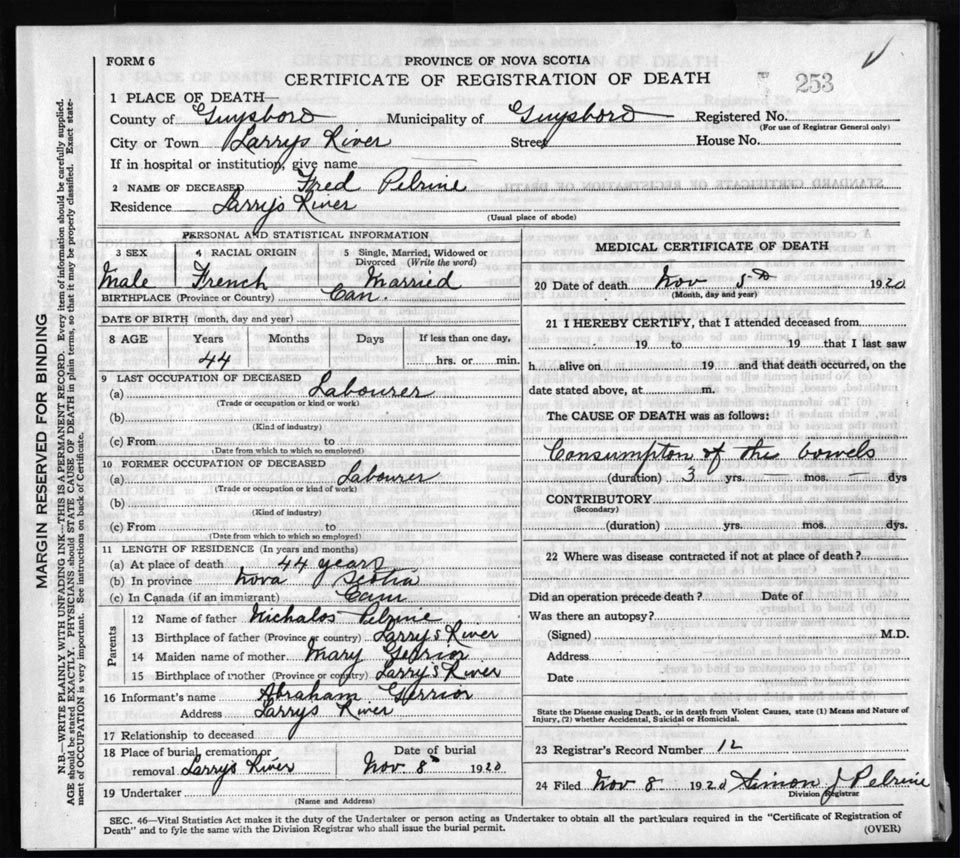 FORM 6
PROVINCE OF NOVA SCOTIA
CERTIFICATE OF REGISTRATION OF DEATH
253
1 PLACE OF DEATH—
County of Guysboro Municipality of Guysboro Registered No.
(For use of Registrar General only)
City or Town Larrys River Street House No.
If in hospital or institution, give name
2 NAME OF DECEASED Fred Pelrine
Residence Larrys River
(Usual place of abode)
PERSONAL AND STATISTICAL INFORMATION
3 SEX 4 RACIAL ORIGIN 5 Single, Married, Widowed or Divorced (Write the word)
Male French Married
BIRTHPLACE (Province or Country) Can.
DATE OF BIRTH (month, day and year)
8 AGE Years Months Days If less than one day,
44 hrs. or min.
9 LAST OCCUPATION OF DECEASED
(a) Labourer
(Trade or occupation or kind or work)
(b)
(Kind of industry)
(c) From to
(Date from which to which so employed)
10 FORMER OCCUPATION OF DECEASED
(a) Labourer
(Trade or occupation or kind of work)
(b)
(Kind of industry)
(c) From to
(Date from which to which so employed)
11 LENGTH OF RESIDENCE (In years and months)
(a) At place of death 44 years
(b) In province Nova Scotia
(c) In Canada (if an immigrant) Can
Parents
12 Name of father Nichalos Pelrine
13 Birthplace of father (Province or country) Larry's River
14 Maiden name of mother Mary Gerrior
15 Birthplace of mother (Province or country) Larry's River
16 Informant's name Abraham Gerrior
Address Larrys River
17 Relationship to deceased
18 Place of burial, cremation or Date of burial
removal Larrys River Nov 8th 1920
19 Undertaker
(Name and Address)
MEDICAL CERTIFICATE OF DEATH
20 Date of death Nov 5th 1920
(Month, day and year)
21 I HEREBY CERTIFY, that I attended deceased from
19 to 19 that I last saw
h alive on 19 and that death occurred, on the
date stated above, at m.
The CAUSE OF DEATH was as follows:
Consumpton of the bowels
(duration) 3 yrs. mos. — dys
CONTRIBUTORY
(Secondary)
(duration) yrs. mos. dys.
22 Where was disease contracted if not at place of death?
Did an operation precede death? Date of
Was there an autopsy?
(Signed) M.D.
Address
Date
State the Disease causing Death, or in death from Violent Causes, state (1) Means and Nature of
Injury, (2) whether Accidental, Suicidal or Homicidal.
23 Registrar's Record Number 12
24 Filed Nov 8 1920 Simon J Pelrine
Division Registrar
SEC. 46—Vital Statistics Act makes it the duty of the Undertaker or person acting as Undertaker to obtain all the particulars required in the "Certificate of Registration of
Death" and to fyle the same with the Division Registrar who shall issue the burial permit.
(OVER)
MARGIN RESERVED FOR BINDING
N.B.—WRITE PLAINLY WITH UNFADING INK—THIS IS A PERMANENT RECORD. Every item of information should be carefully supplied.
AGE should be stated EXACTLY. PHYSICIANS should STATE CAUSE OF DEATH in plain terms, so that it may be properly classified. Exact state-
ment of OCCUPATION is very important. See instructions on back of Certificate.